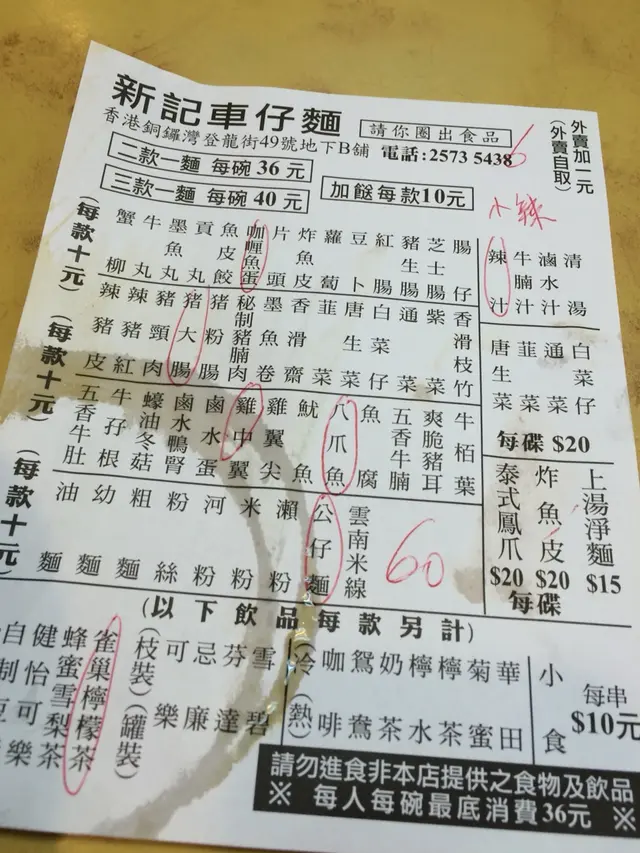 新記車仔麵
香港銅鑼灣登龍街49號地下B舖
請你圈出食品
電話:2573 5438
6
外賣加一元
(外賣自取)
二款一麵 每碗 36 元
三款一麵 每碗 40 元
加餸每款10元
小辣
(每款十元)
蟹柳
牛丸
墨魚丸
貢丸
魚皮餃
咖喱魚蛋
片頭
炸魚皮
蘿蔔
豆卜
紅腸
豬生腸
芝士腸
腸仔
辣汁
牛腩汁
滷水汁
清湯
(每款十元)
辣豬皮
辣豬紅
豬頸肉
豬大腸
豬粉腸
秘制豬腩肉
墨魚卷
香滑齋
韮菜
唐生菜
白菜仔
通菜
紫菜
香滑枝竹
唐生菜
韮菜
通菜
白菜仔
每碟 $20
(每款十元)
五香牛肚
牛孖根
蠔油冬菇
鹵水鴨腎
鹵水蛋
雞中翼
雞翼尖
魷魚
八爪魚
魚腐
五香牛腩
爽脆豬耳
牛栢葉
油麵
幼麵
粗麵
粉絲
河粉
米粉
瀨粉
公仔麵
雲南米線
60
泰式鳳爪
$20
炸魚皮
$20
每碟
上湯淨麵
$15
(以下飲品每款另計)
自制豆
健怡可樂
蜂蜜雪梨茶
雀巢檸檬茶
(枝裝)
(罐裝)
可樂
忌廉
芬達
雪碧
(冷
(熱)
咖啡
鴛鴦
奶茶
檸水
檸茶
菊蜜
華田
小食
每串
$10元
請勿進食非本店提供之食物及飲品
※ 每人每碗最底消費36元 ※